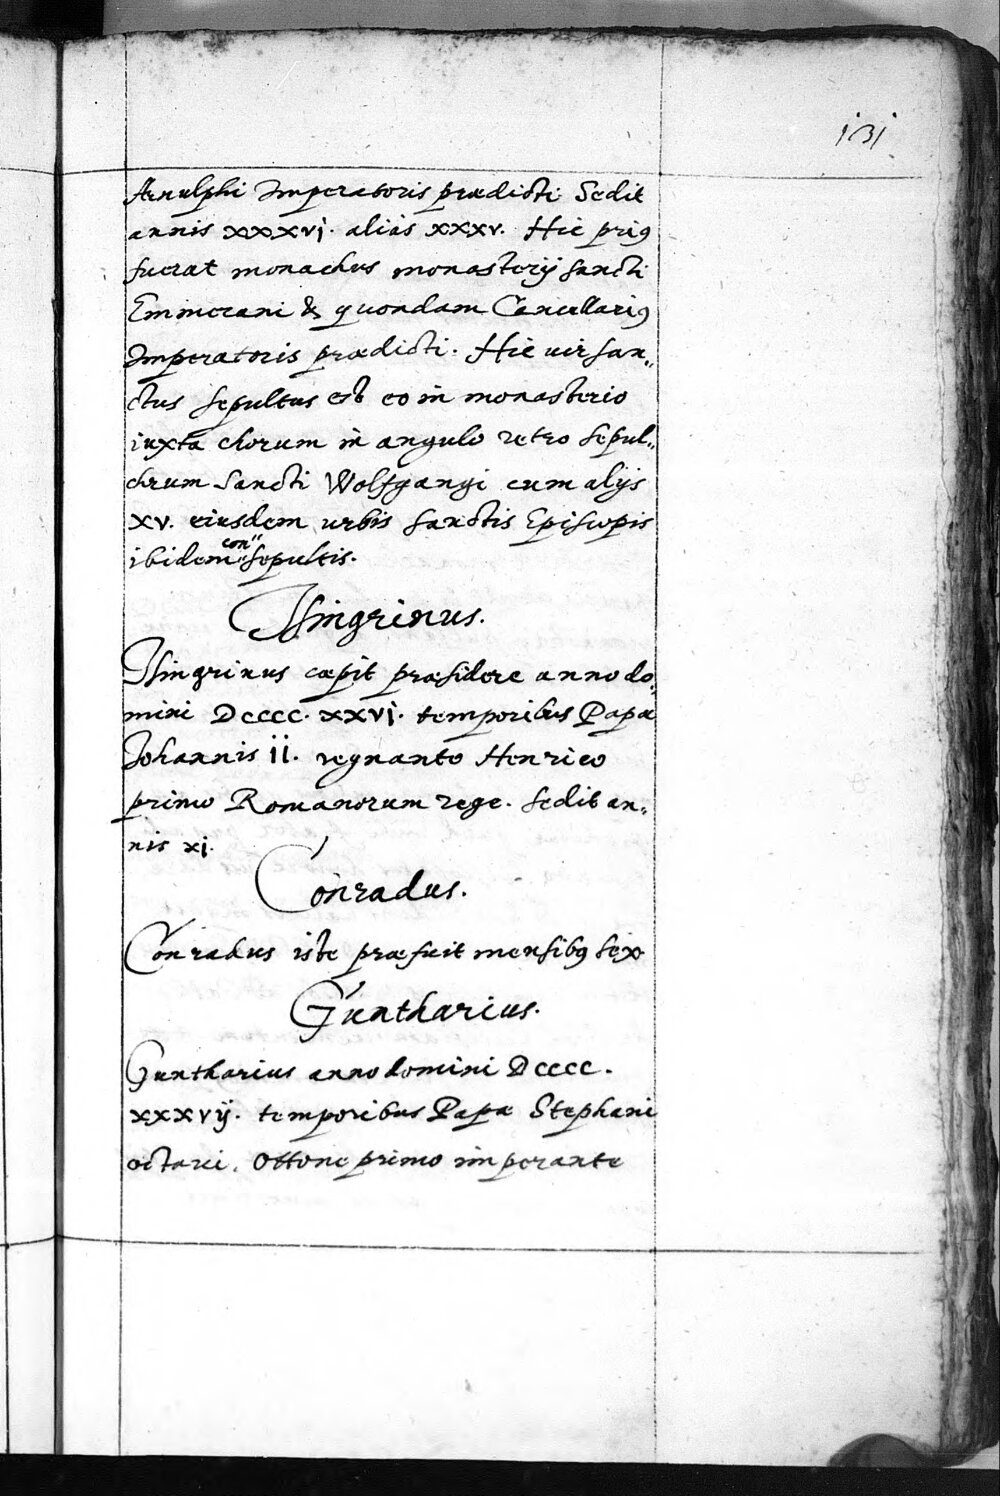 131
Arnulphi Imperatoris prædicti Sedit
annis xxxvj. aliàs xxxv. Hic prius
fuerat monachus monasterij sancti
Emmerani & quondam Cancellarius
Imperatoris prædicti. Hic vir san„
ctus sepultus est eo in monasterio
iuxta chorum in angulo retro sepul„
chrum sancti Wolfgangi cum alijs
xv. eiusdem urbis sanctis Episcopis
ibidem con„sepultis.
Isingrinus.
Isingrinus cæpit præsidere anno do„
mini Dcccc. xxvj. temporibus Papæ
Johannis ii. regnante Henrico
primo Romanorum rege. sedit an„
nis xj.
Conradus.
Conradus iste præfuit mensibus sex
Guntharius.
Guntharius anno domini Dcccc.
xxxvij. temporibus Papæ Stephani
octavi, Ottone primo imperante